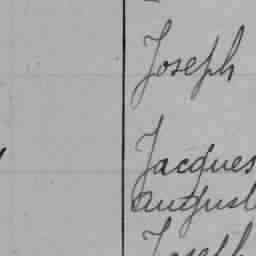 Joseph
Jacques
August
Joseph